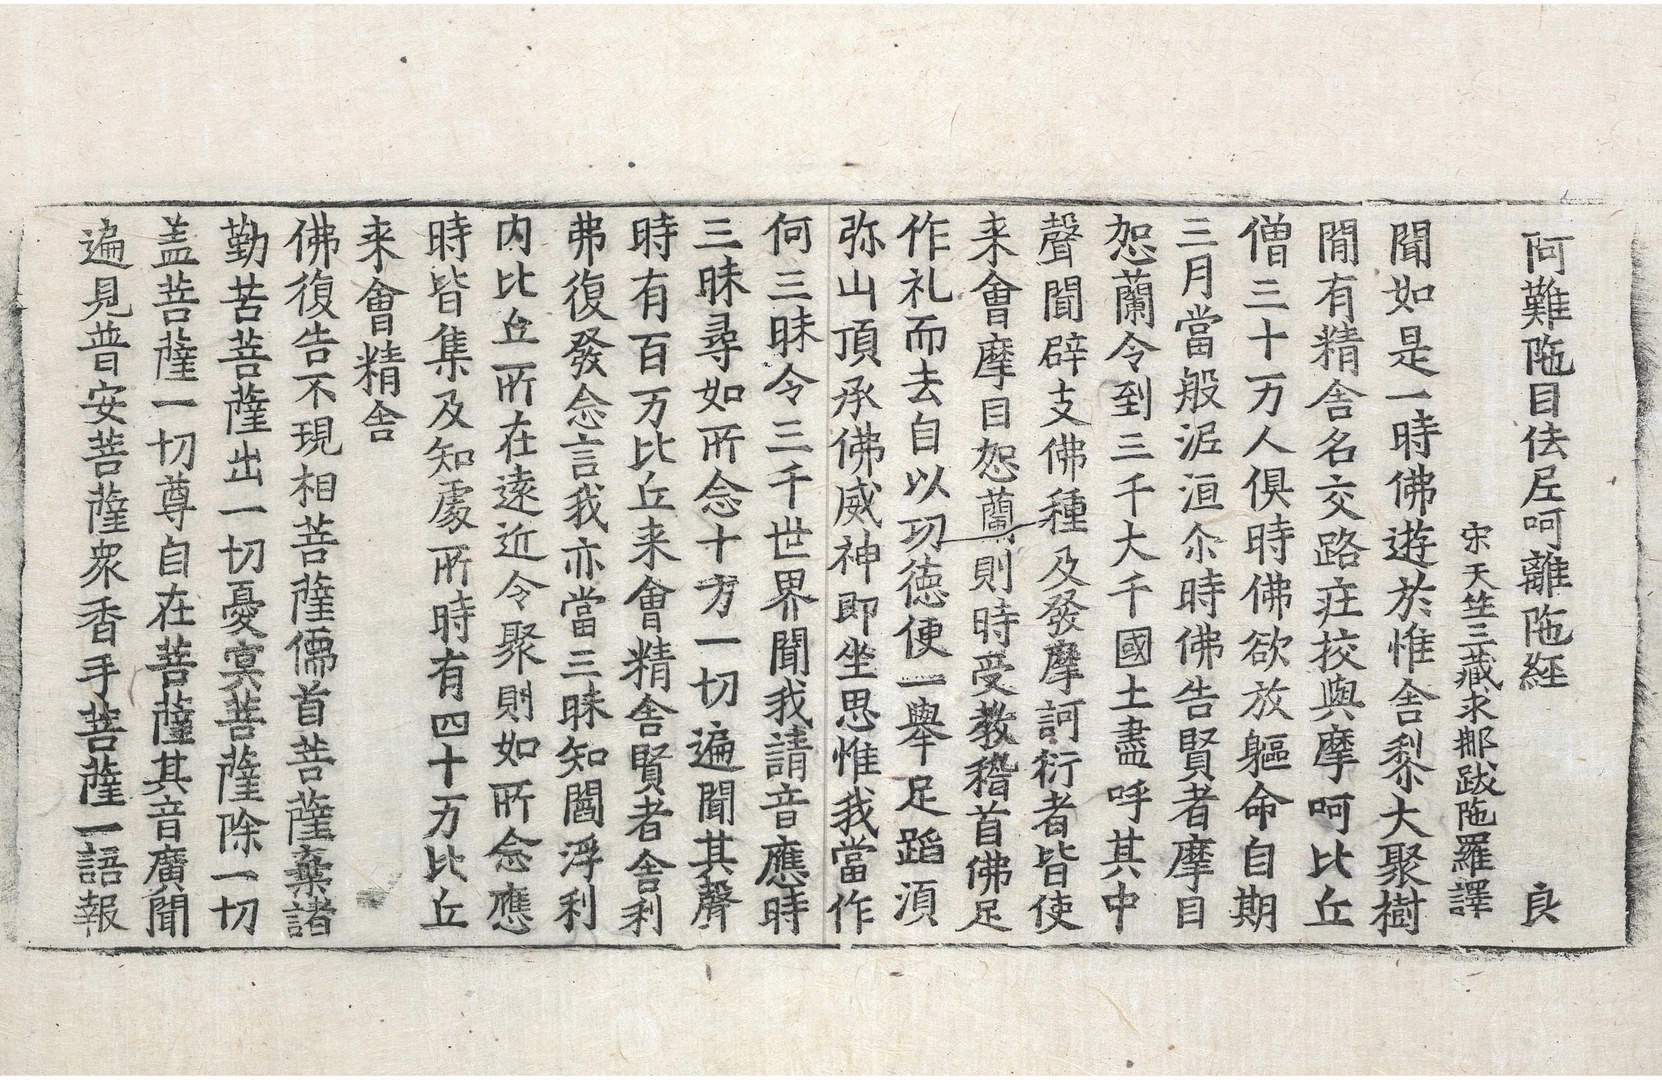 阿難陁目佉尼呵離陁経 良
宋天竺三藏求那跋陁羅譯
聞如是一時佛遊於惟舍梨大聚樹
閒有精舍名交路莊挍與摩呵比丘
僧三十万人俱時佛欲放軀命自期
三月當般泥洹尒時佛告賢者摩目
恕蘭令到三千大千國土盡呼其中
聲聞辟支佛種及發摩訶衍者皆使
来會摩目恕蘭則時受教稽首佛足
作礼而去自以功德便一舉足蹈湏
弥山頂承佛威神即坐思惟我當作
何三昧令三千世界聞我請音應時
三昧尋如所念十方一切遍聞其聲
時有百万比丘来會精舍賢者舍利
弗復發念言我亦當三昧知閻浮利
内比丘所在遠近令聚則如所念應
時皆集及知處所時有四十万比丘
来會精舍
佛復告不現相菩薩儒首菩薩棄諸
勤苦菩薩出一切憂寞菩薩除一切
盖菩薩一切尊自在菩薩其音廣聞
遍見普安菩薩衆香手菩薩一語報